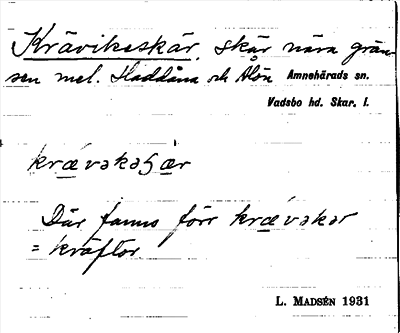 Krävikeskär, skär nära grän-
sen mel. Haddåna och Alön Amnehärads sn.
Vadsbo hd. Skar. l.
krævəkəʂær
Där fanns förr krævəkər
= kräftor
L. MADSÉN 1931